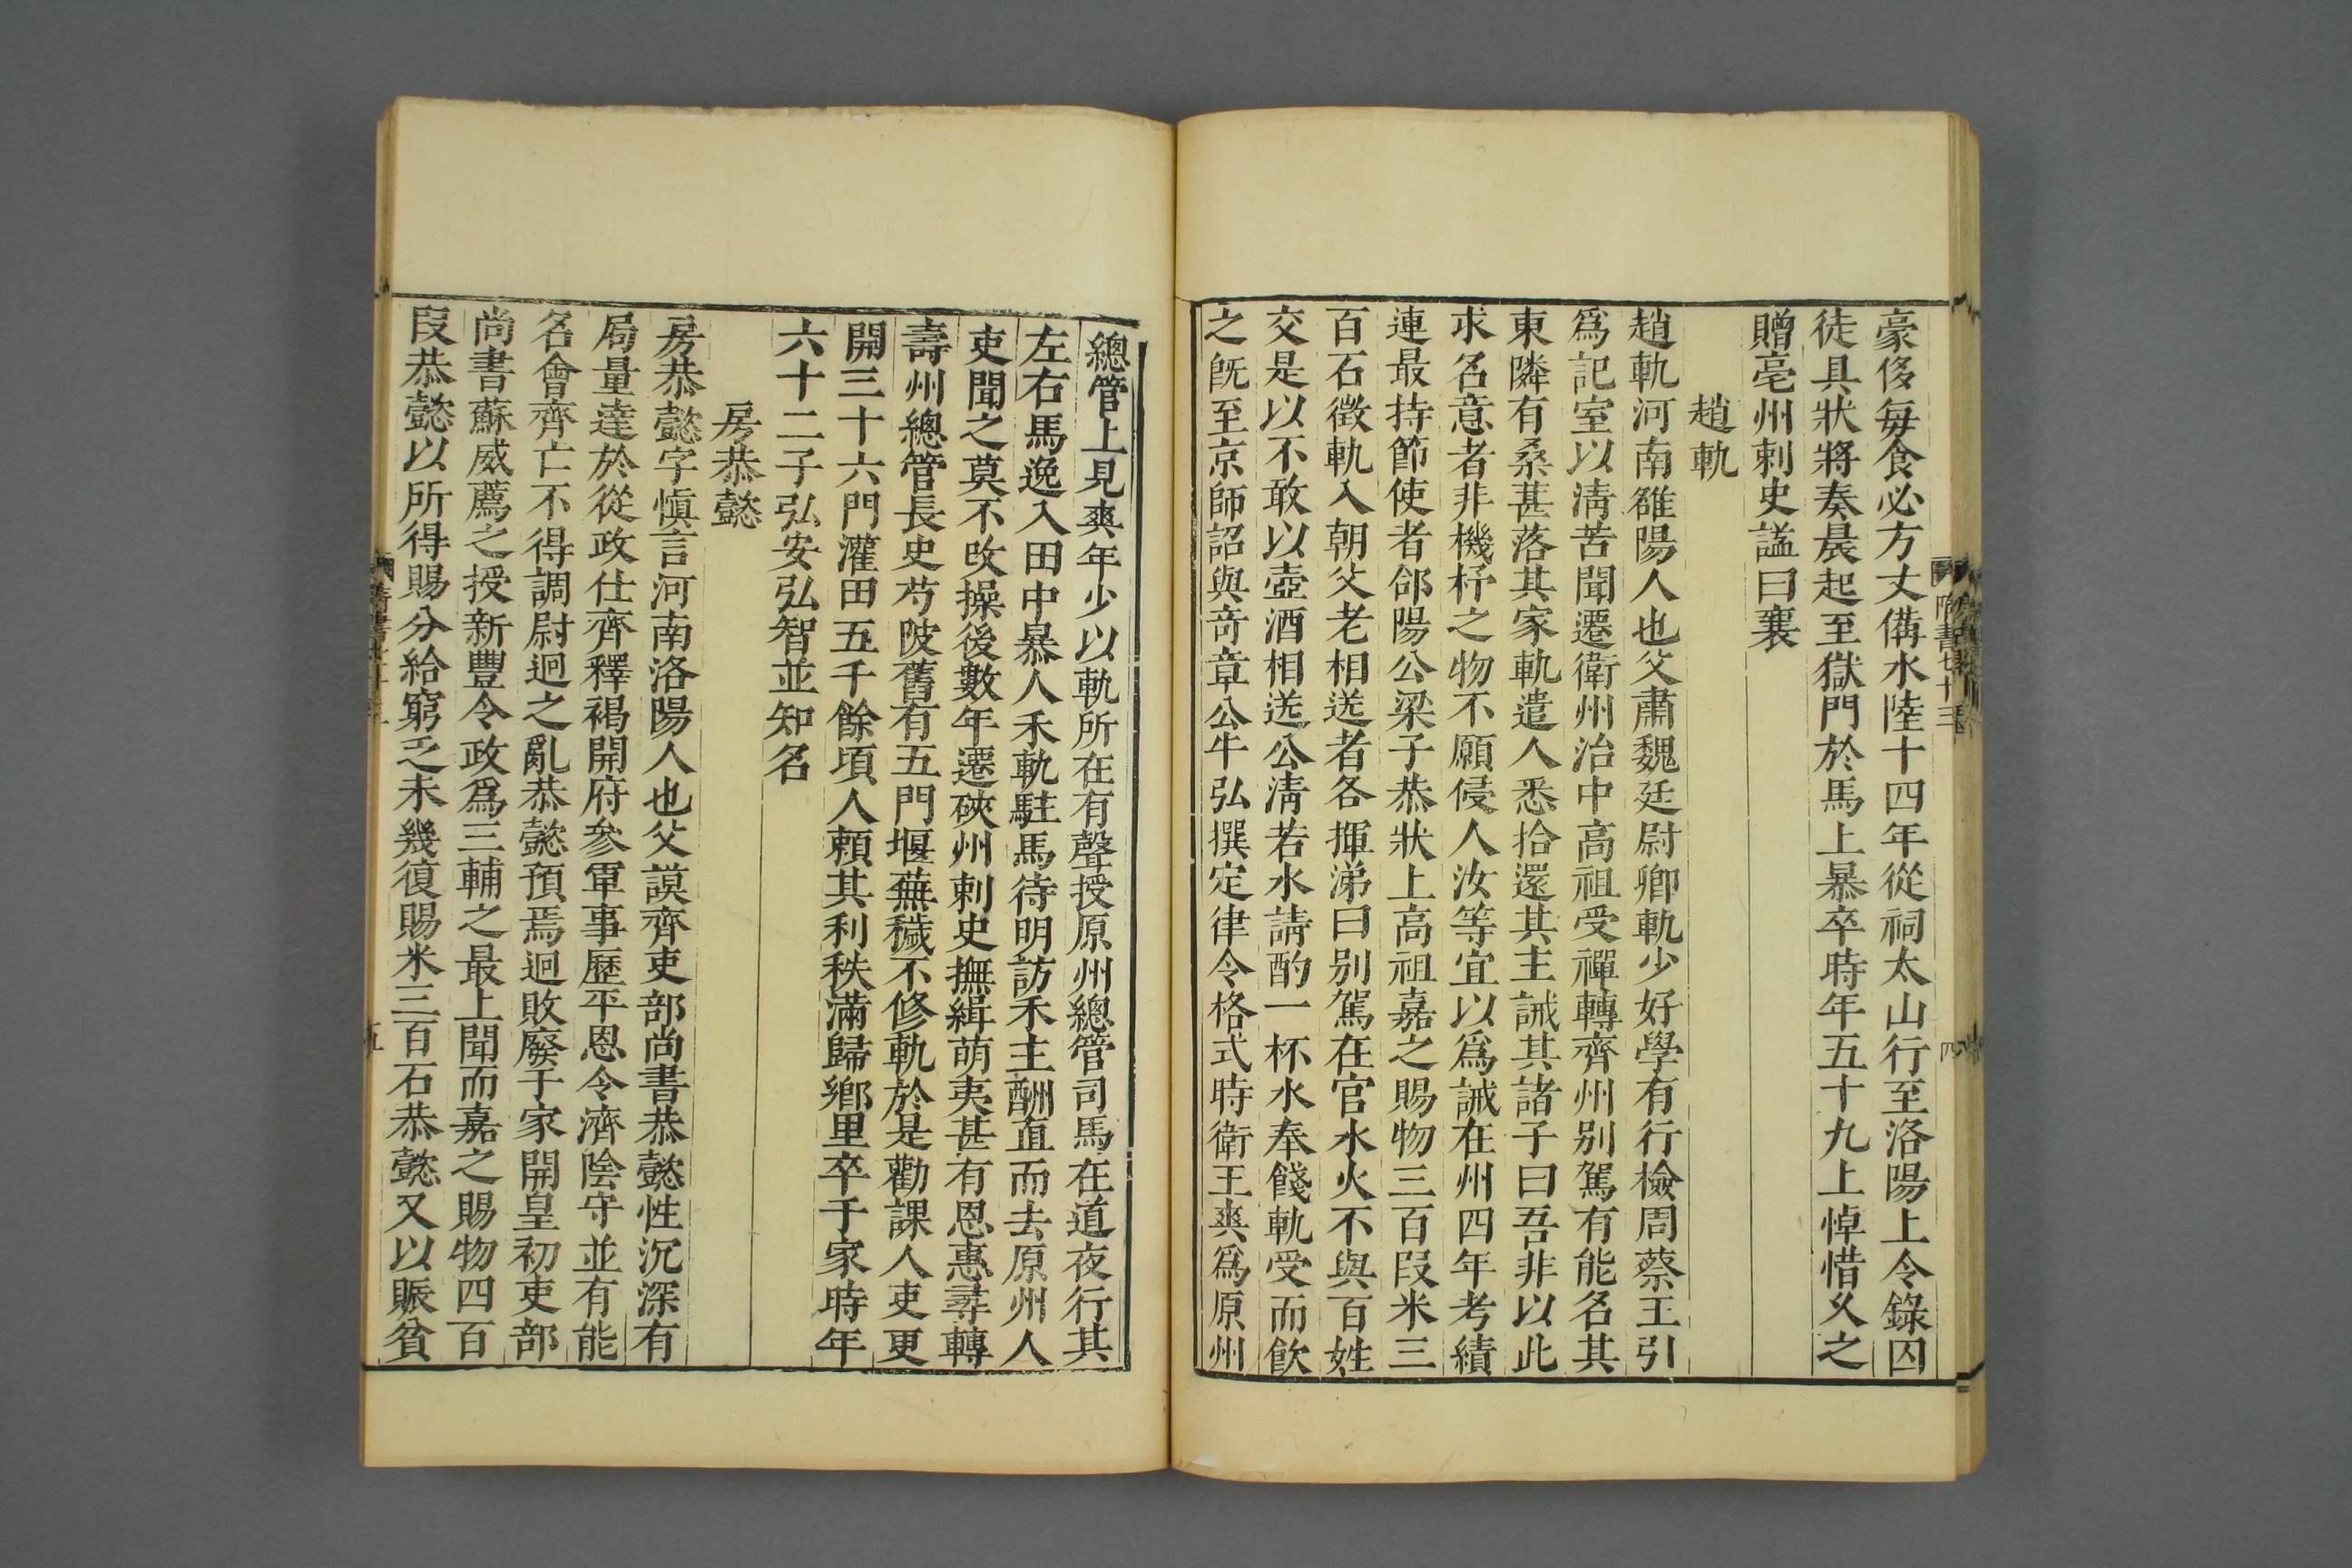 豪侈每食必方丈備水陸十四年從祠太山行至洛陽上令錄囚
徒具狀將奏晨起至獄門於馬上暴卒時年五十九上悼惜久之
贈亳州刺史諡曰襄
趙軌
趙軌河南雒陽人也父肅魏廷尉卿軌少好學有行檢周蔡王引
爲記室以淸苦聞遷衛州治中高祖受禪轉齊州别駕有能名其
東隣有桑葚落其家軌遣人悉拾還其主誡其諸子曰吾非以此
求名意者非機杼之物不願侵人汝等宜以爲誡在州四年考績
連最持節使者郃陽公梁子恭狀上高祖嘉之賜物三百段米三
百石徵軌入朝父老相送者各揮涕曰别駕在官水火不與百姓
交是以不敢以壺酒相送公淸若水請酌一杯水奉餞軌受而飮
之旣至京師詔與奇章公牛弘撰定律令格式時衛王爽爲原州
總管上見爽年少以軌所在有聲授原州總管司馬在道夜行其
左右馬逸入田中暴人禾軌駐馬待明訪禾主酬直而去原州人
吏聞之莫不改操後數年遷硤州刺史撫緝萌夷甚有恩惠尋轉
壽州總管長史芍陂舊有五門堰蕪穢不修軌於是勸課人吏更
開三十六門灌田五千餘頃人賴其利秩滿歸鄉里卒于家時年
六十二子弘安弘智並知名
房恭懿
房恭懿字愼言河南洛陽人也父謨齊吏部尚書恭懿性沉深有
局量達於從政仕齊釋褐開府參軍事歷平恩令濟陰守並有能
名會齊亡不得調尉迥之亂恭懿預焉迥敗廢于家開皇初吏部
尚書蘇威薦之授新豐令政爲三輔之最上聞而嘉之賜物四百
段恭懿以所得賜分給窮乏未幾復賜米三百石恭懿又以賑貧
隋書七十三
四